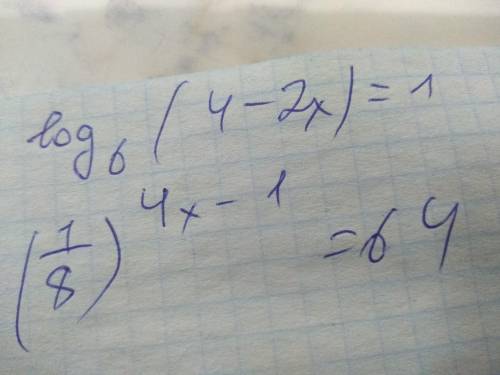 log₆(4-2x)=1
(1/8)^{4x-1}=64